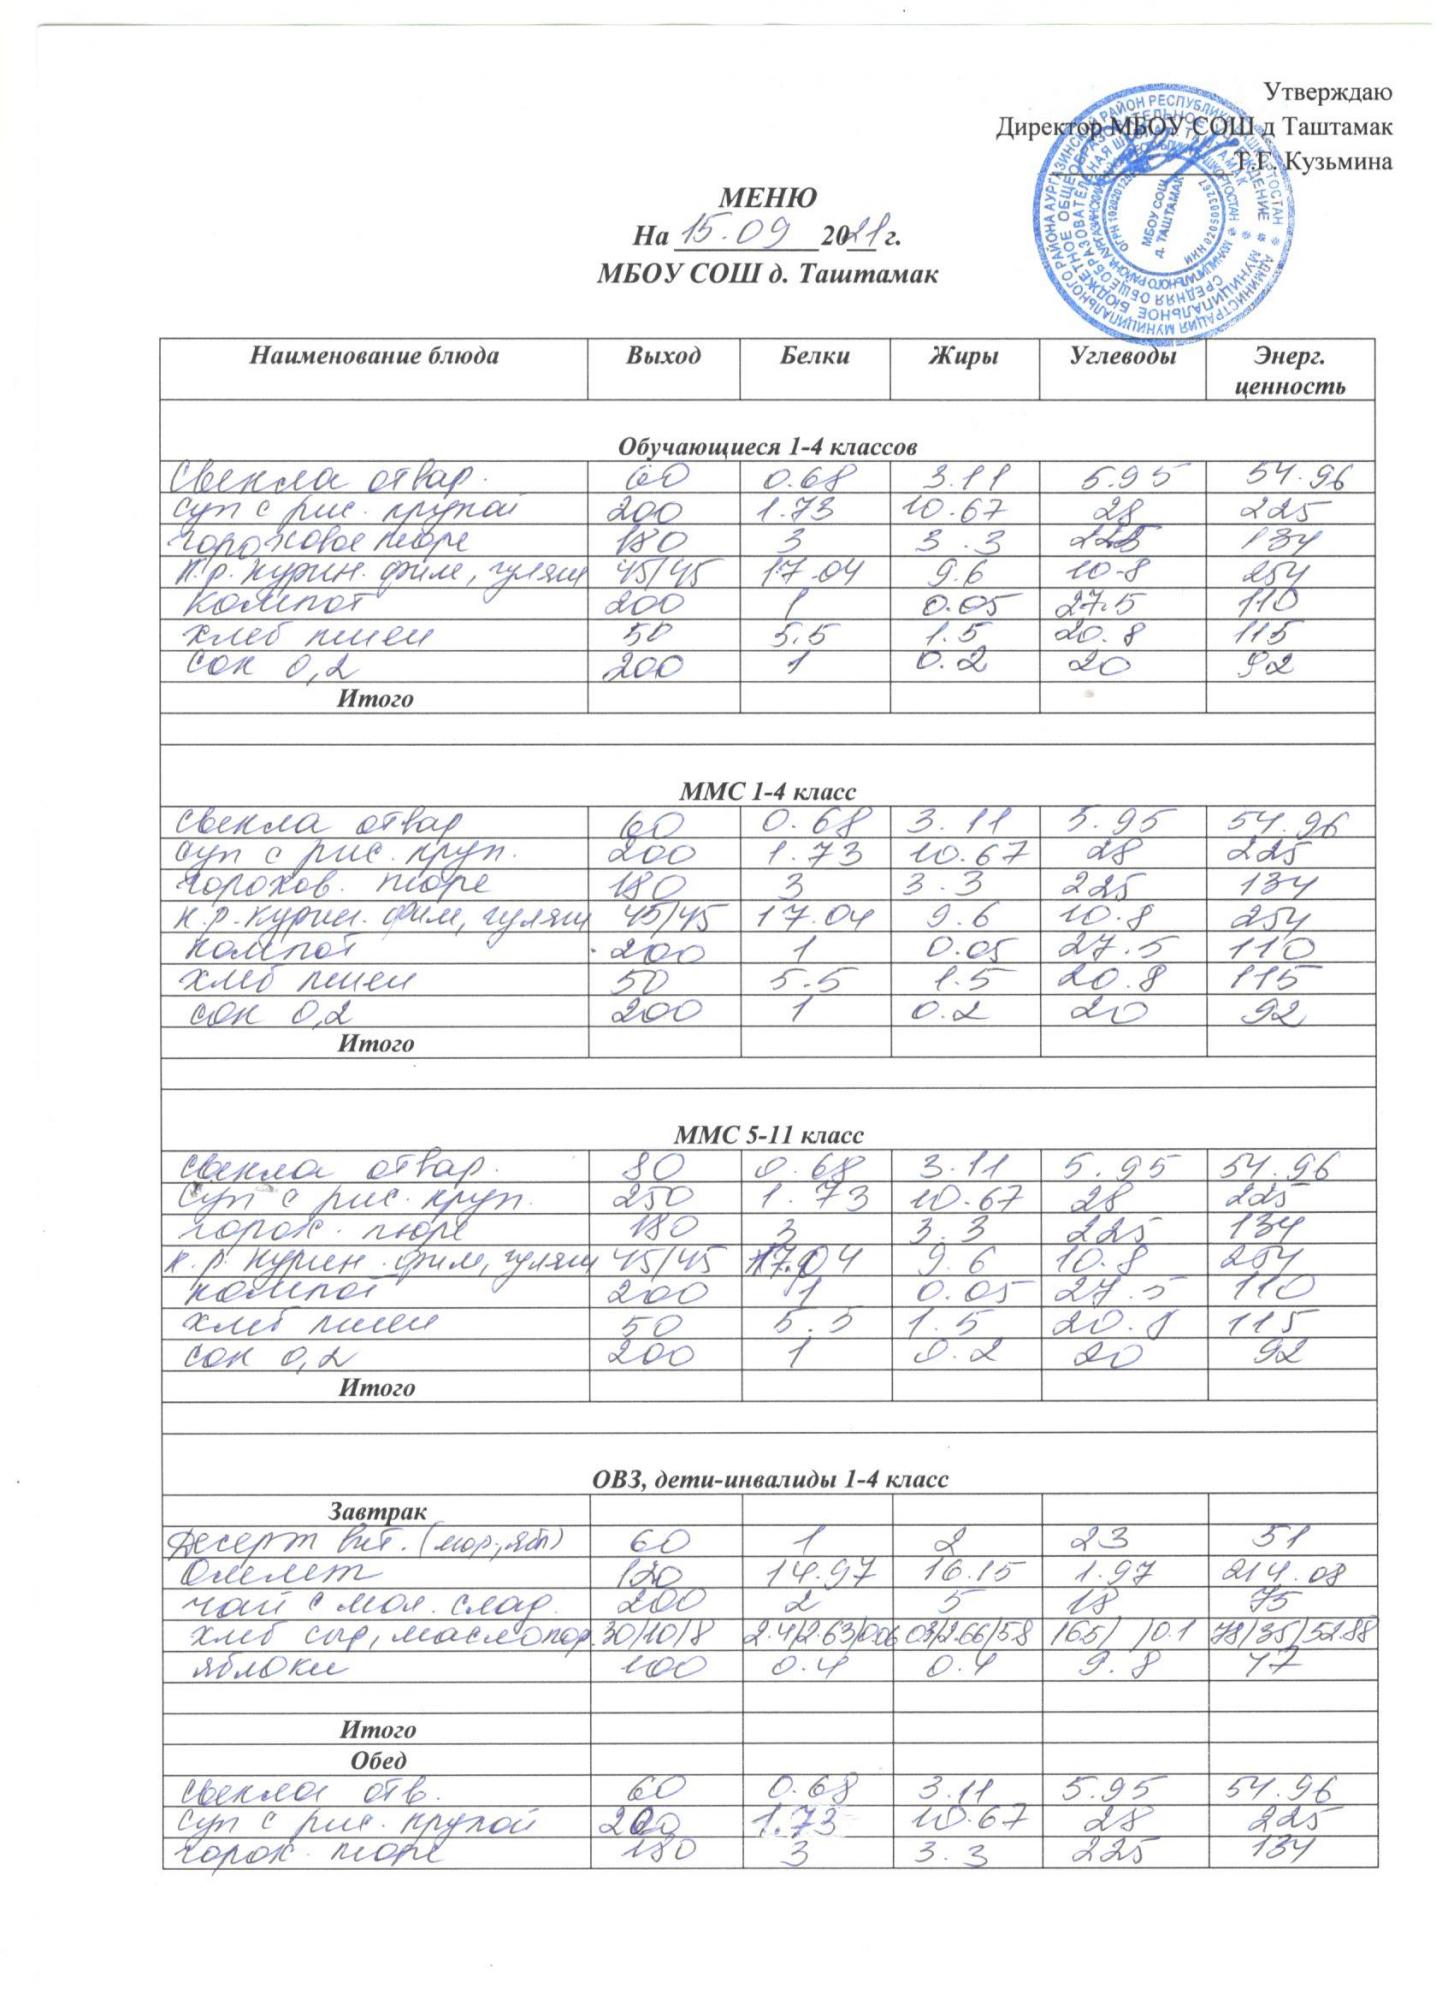 Утверждаю
Директор МБОУ СОШ д Таштамак
Т.Г. Кузьмина
МЕНЮ
На 15.09 2021 г.
МБОУ СОШ д. Таштамак
МБОУ СОШ
д. ТАШТАМАК
Наименование блюда Выход Белки Жиры Углеводы Энерг. ценность
Обучающиеся 1-4 классов
Свекла отвар. 60 0.68 3.11 5.95 54.96
Суп с рис. крупой 200 1.73 10.67 28 225
гороховое пюре 180 3 3.3 225 134
к.р. курин. филе, гуляш 45/45 17.04 9.6 10.8 254
компот 200 1 0.05 27.5 110
хлеб пшен 50 5.5 1.5 20.8 115
сок 0,2 200 1 0.2 20 92
Итого
ММС 1-4 класс
Свекла отвар 60 0.68 3.11 5.95 54.96
Суп с рис. круп. 200 1.73 10.67 28 225
горохов. пюре 180 3 3.3 225 134
к.р. курин. филе, гуляш 45/45 17.04 9.6 10.8 254
компот 200 1 0.05 27.5 110
хлеб пшен 50 5.5 1.5 20.8 115
сок 0,2 200 1 0.2 20 92
Итого
ММС 5-11 класс
Свекла отвар. 80 0.68 3.11 5.95 54.96
Суп с рис. круп. 250 1.73 10.67 28 225
горох. пюре 180 3 3.3 225 134
к.р. курин. филе, гуляш 45/45 17.04 9.6 10.8 254
компот 200 1 0.05 27.5 110
хлеб пшен 50 5.5 1.5 20.8 115
сок 0,2 200 1 0.2 20 92
Итого
ОВЗ, дети-инвалиды 1-4 класс
Завтрак
Десерт вит. (мор., ябл) 60 1 2 23 51
Омлет 120 14.97 16.15 1.97 214.08
чай с мол. слад. 200 2 5 18 75
хлеб сыр, масло пор. 30/10/8 2.4/2.63/0.06 03/2.66/5.8 16.5/ /0.1 78/35/52.88
яблоки 100 0.4 0.4 9.8 47
Итого
Обед
Свекла отв. 60 0.68 3.11 5.95 54.96
Суп с рис. крупой 200 1.73 10.67 28 225
горох. пюре 180 3 3.3 225 134